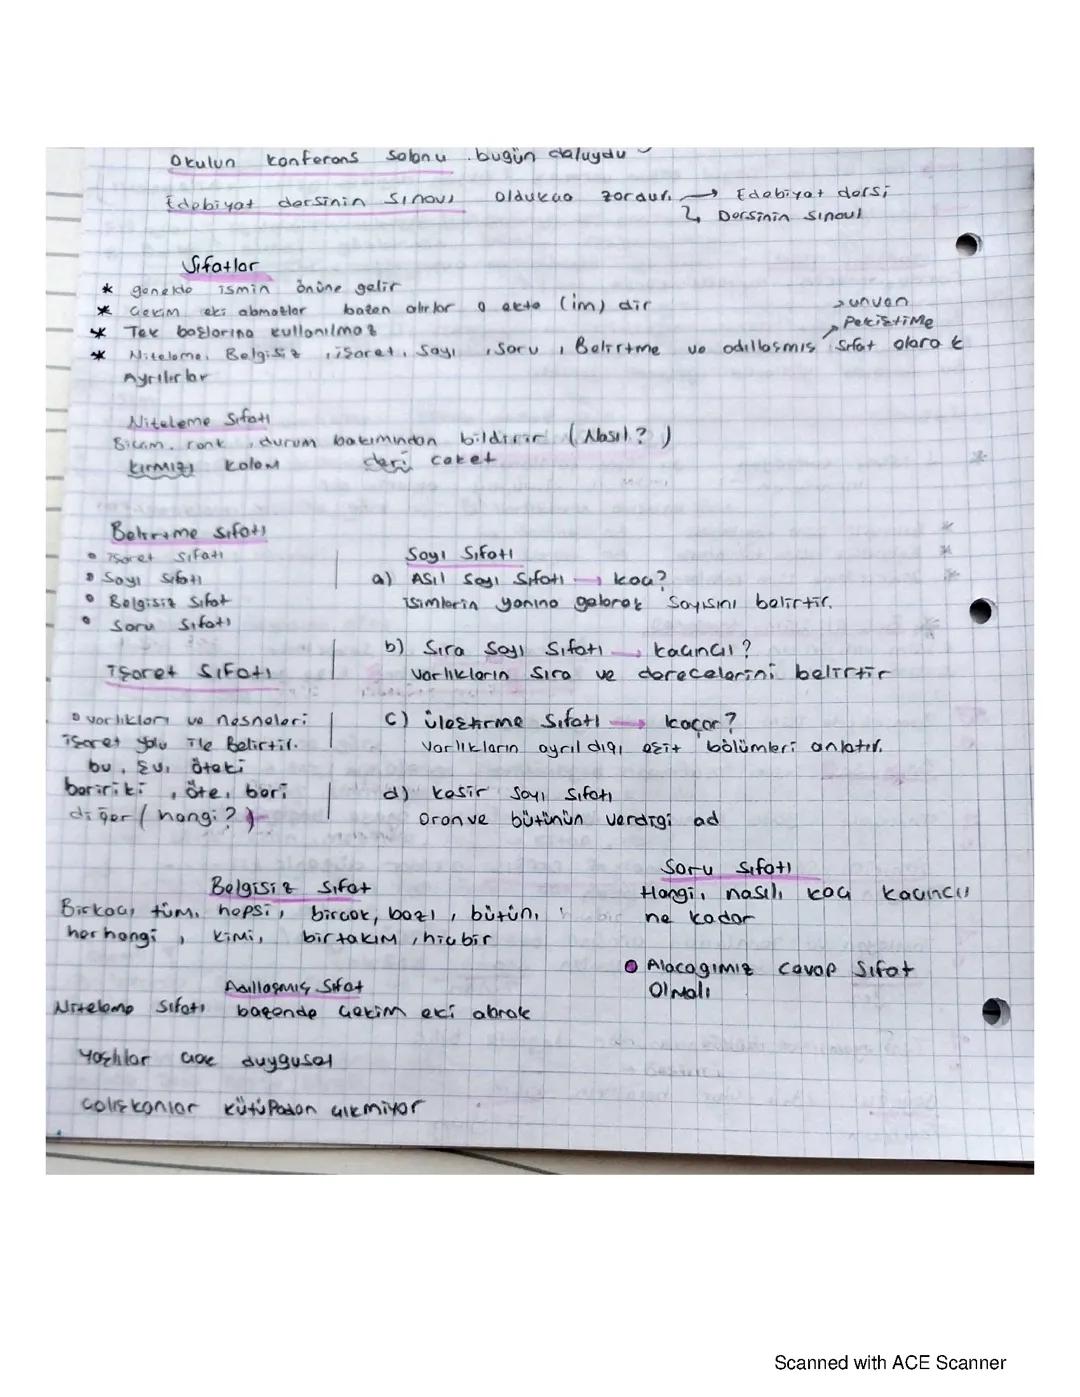 Okulun konferans salonu bugün doluydu
Edebiyat dersinin sınavı oldukça zordur. → Edebiyat dersi
↳ Dersinin sınavı
Sıfatlar
* genelde ismin önüne gelir
* Çekim eki almazlar bazen alırlar o ekte (im) dir
→ unvan
* Tek başlarına kullanılmaz
Pekiştime
* Niteleme, Belgisiz, işaret, Sayı, Soru, Belirtme ve adıllaşmış Sıfat olarak
Ayrılırlar
Niteleme Sıfatı
Biçim, renk, durum bakımından bildirir (Nasıl?)
kırmızı kalem deri ceket
Belirtme sıfatı
• işaret Sıfatı
• Sayı Sıfatı
• Belgisiz Sıfat
• Soru Sıfatı
işaret Sıfatı
• varlıkları ve nesneleri
işaret yolu ile Belirtir.
bu, şu, öteki
beririki, öte, beri
diğer (hangi?)
Sayı Sıfatı
a) Asıl Sayı Sıfatı → kaç?
isimlerin yanına gelerek Sayısını belirtir.
b) Sıra Sayı Sıfatı → kaçıncı?
Varlıkların Sıra ve derecelerini belirtir
c) Üleştirme Sıfatı → kaçar?
Varlıkların ayrıldığı eşit bölümleri anlatır.
d) kesir Sayı Sıfatı
Oran ve bütünün verdigi ad
Belgisiz Sıfat
Birkaç, tüm, hepsi, birçok, bazı, bütün,
herhangi, kimi, birtakım, hiçbir
Soru Sıfatı
Hangi, nasıl, kaç kaçıncı
ne kadar
• Alacagımız cevap Sıfat
Olmalı
Adıllaşmış Sıfat
Niteleme Sıfatı bazende çekim eki alarak
Yaşlılar çok duygusal
Çalışkanlar kütüpadan çıkmıyor
Scanned with ACE Scanner